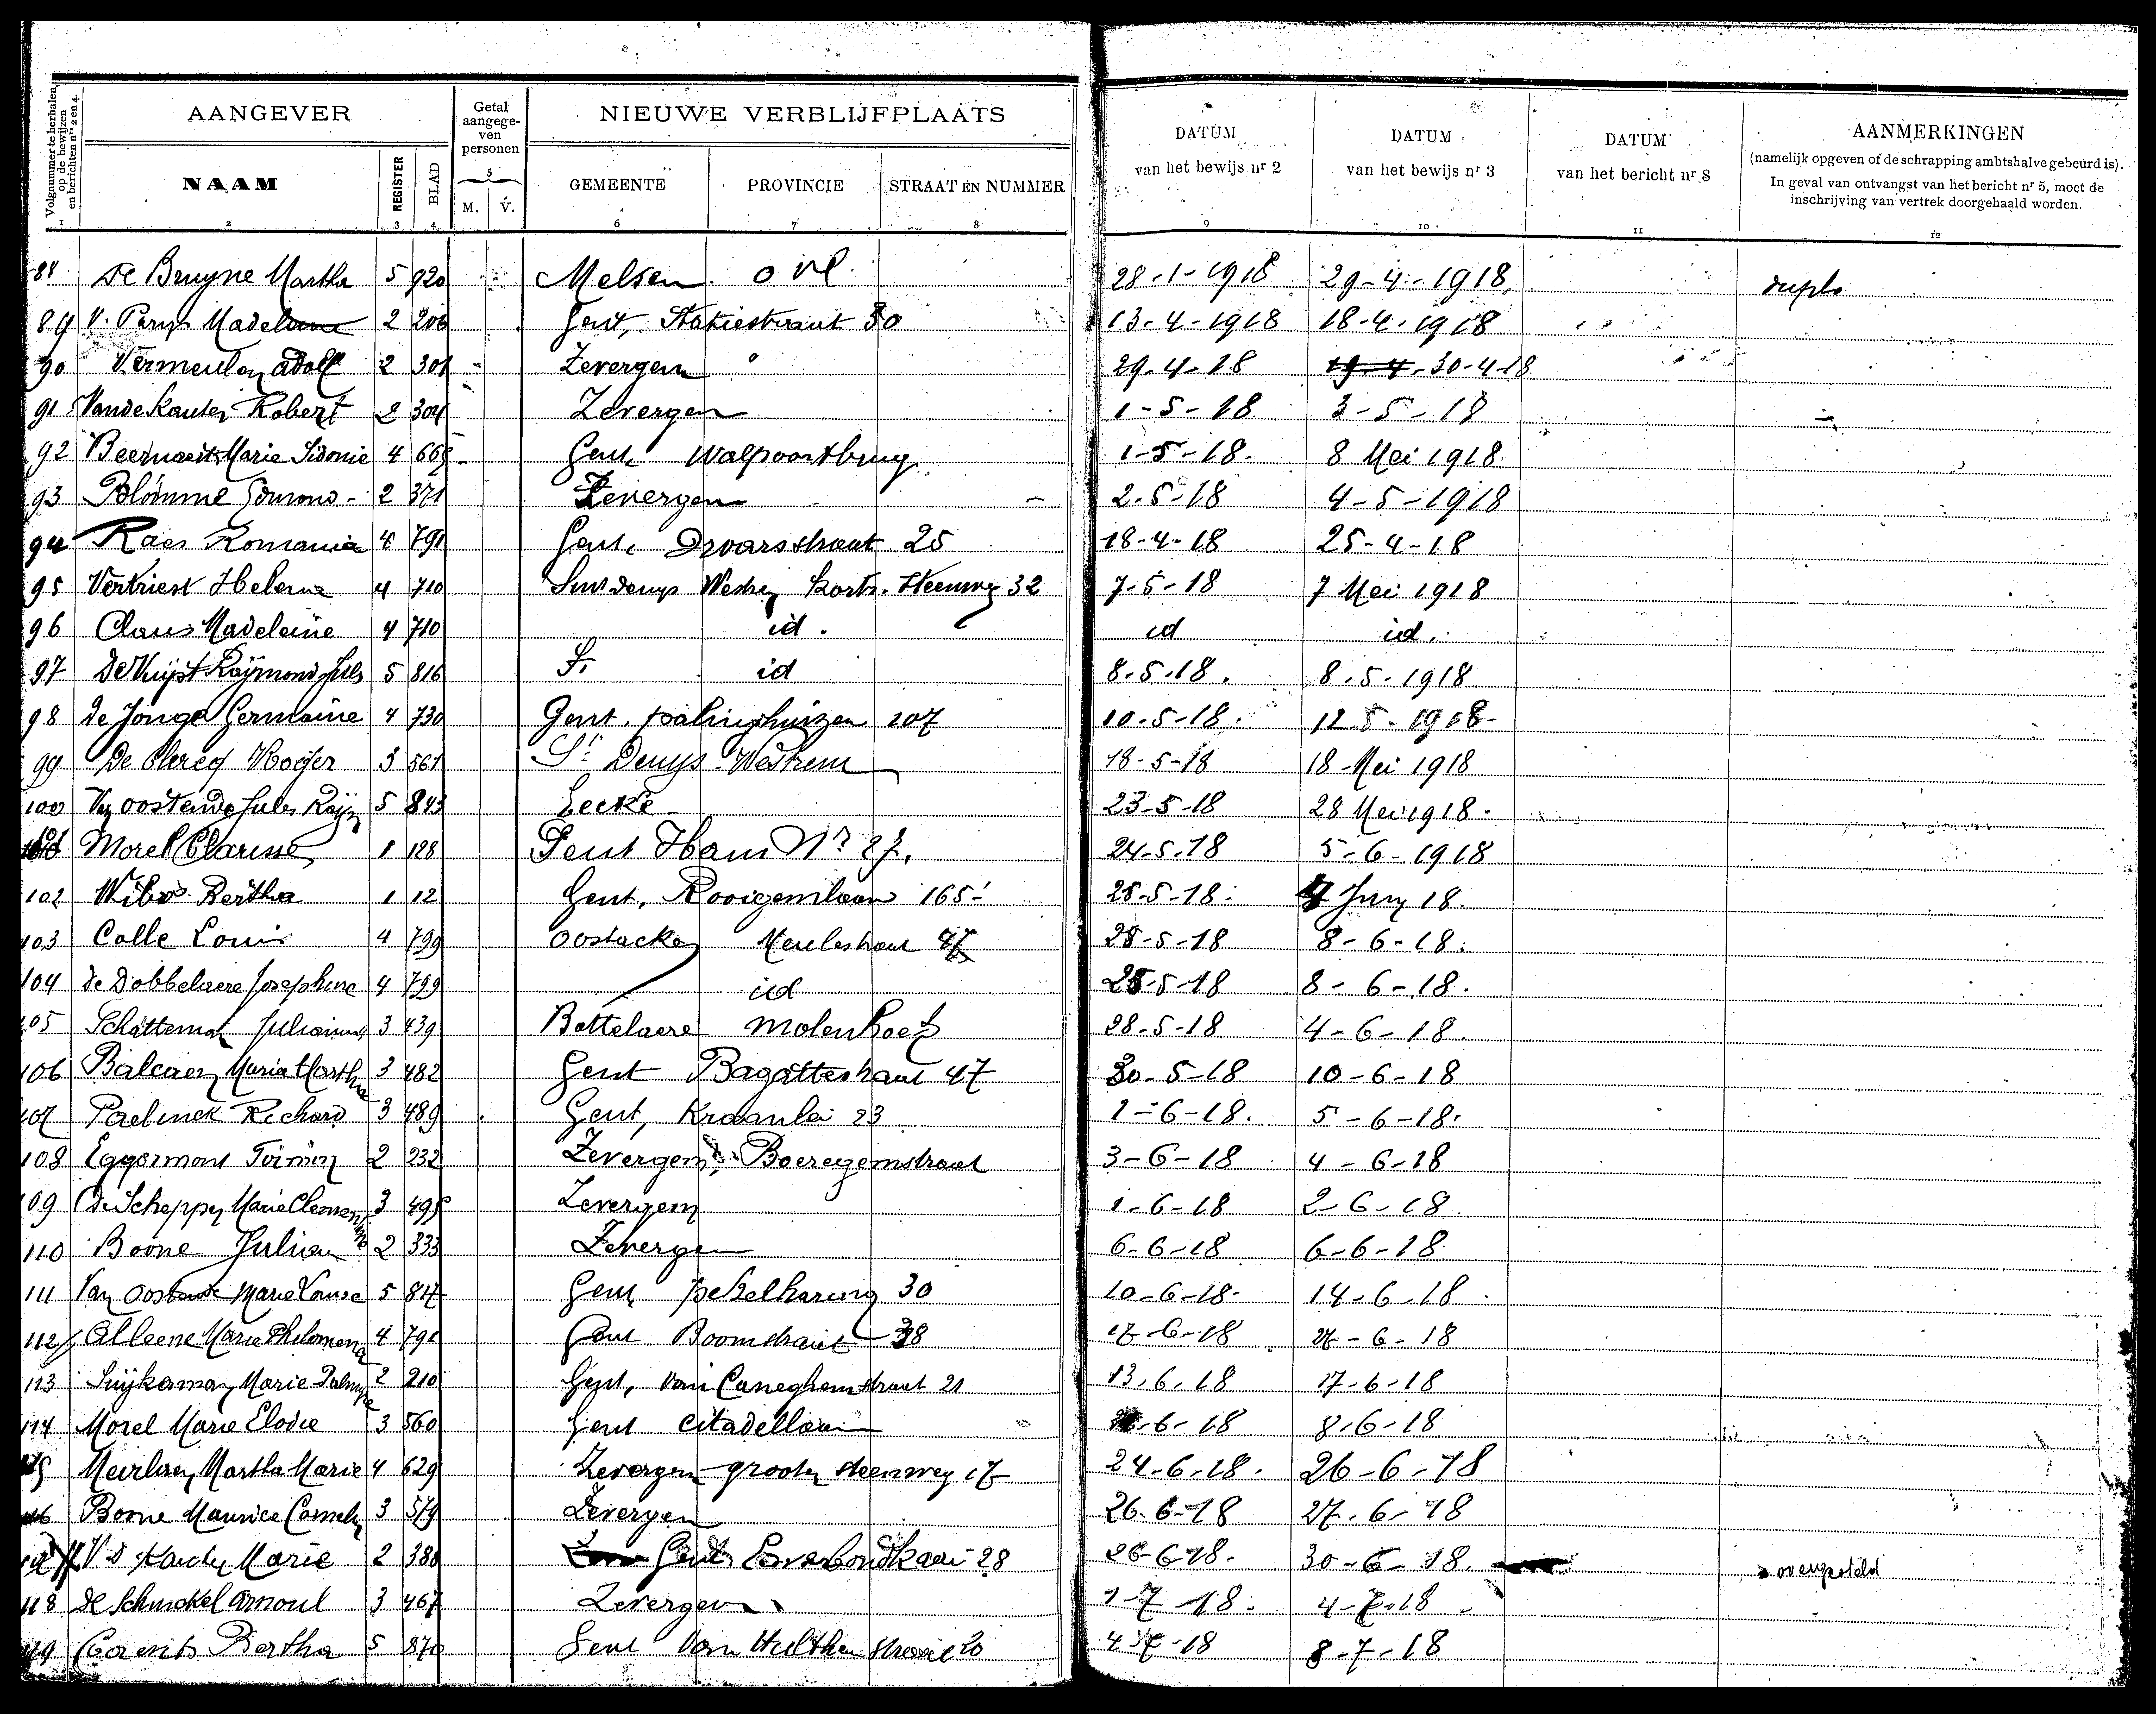 Volgnummer te herhalen op de bewijzen en berichten nrs 2 en 4.
AANGEVER
Getal aangegeven personen
NIEUWE VERBLIJFPLAATS
DATUM van het bewijs nr 2
DATUM van het bewijs nr 3
DATUM van het bericht nr 8
AANMERKINGEN
(namelijk opgeven of de schrapping ambtshalve gebeurd is).
In geval van ontvangst van het bericht nr 5, moet de
inschrijving van vertrek doorgehaald worden.
NAAM REGISTER BLAD M. V. GEMEENTE PROVINCIE STRAAT EN NUMMER
1 2 3 4 5 6 7 8 9 10 11 12
88 De Bruyne Martha 5 920 Melsen O Vl 28-1-1918 29-4-1918 duplo
89 V. Parys 2 206 Gent, Statiestraat 30 13-4-1918 18-4-1918
90 Vermeulen Adolf 2 301 Zevergem 29-4-18 30-4-18
91 Robert 2 304 Zevergem 1-5-18 3-5-18
92 Beernaert Marie Sidonie 4 665 Gent, Walpoortbrug 1-5-18. 8 Mei 1918
93 Blomme Edmond 2 371 Zevergem 2-5-18 4-5-1918
94 Raes Romania 4 791 Gent, 25 18-4-18 25-4-18
95 Vertriest Helena 4 710 Sint Denys Westrem Kortr. Steenweg 32 7-5-18 7 Mei 1918
96 Claus Madeleine 4 710 id. id id.
97 De Vuyst Raymond Jules 5 816 id 8.5.18. 8.5.1918
98 De Jonge Germaine 4 730 Gent. palinghuizen 107 10-5-18. 12 5-1918-
99 De Clercq Roger 3 561 St Denys-Westrem 18-5-18 18-Mei 1918
100 Van Oostende Jules Raym 5 843 Eecke 23-5-18 28 Mei 1918.
101 Morel Clarisse 1 128 Gent Ham Nr 27. 24-5-18 5-6-1918
102 Wibo Bertha 1 12 Gent, Rooigemlaan 165 25-5-18. 4 Juny 18.
103 Calle Louis 4 799 Oostacker Meulestraat 47 28-5-18 8-6-18.
104 De Dobbelaere Josephine 4 799 id 28-5-18 8-6-18.
105 Schatteman Julianus 3 439 Bottelaere Molenhoek 28-5-18 4-6-18.
106 Balcaen Maria Martha 3 482 Gent Bagattestraat 47 30-5-18 10-6-18
107 Paelinck Richard 3 489 Gent, Kraanlei 23 1-6-18. 5-6-18.
108 Eggermont Firmin 2 232 Zevergem, Boeregemstraat 3-6-18 4-6-18
109 De Schepper Marie Clementine 3 495 Zevergem 1-6-18 2-6-18.
110 Boone Julien 2 333 Zevergem 6-6-18 6-6-18
111 Van Oostende Marie Louise 5 817 Gent pekelharing 30 10-6-18. 14-6-18
112 Alleene Marie Philomena 4 791 Gent Boomstraat 38 17-6-18 6-18
113 Suykerman Marie Palmyre 2 210 Gent, Van Caneghemstraat 21 13.6.18 17-6-18
114 Morel Marie Elodie 3 560 Gent Citadellaan 6-18 8-6-18
115 Meirlaen Martha Marie 4 629 Zevergem grooten steenweg 17 24-6-18. 26-6-18
116 Boone Maurice Cornelis 3 579 Zevergem 26-6-18 27-6-18
117 V D Marie 2 380 Gent 28 26-6-18. 30-6-18.
118 De Schinckel Arnoul 3 467 Zevergem 1-7-18. 4-7-18
119 Coorents Bertha 5 870 Gent Van Hulthem straat 20 4-7-18 8-7-18